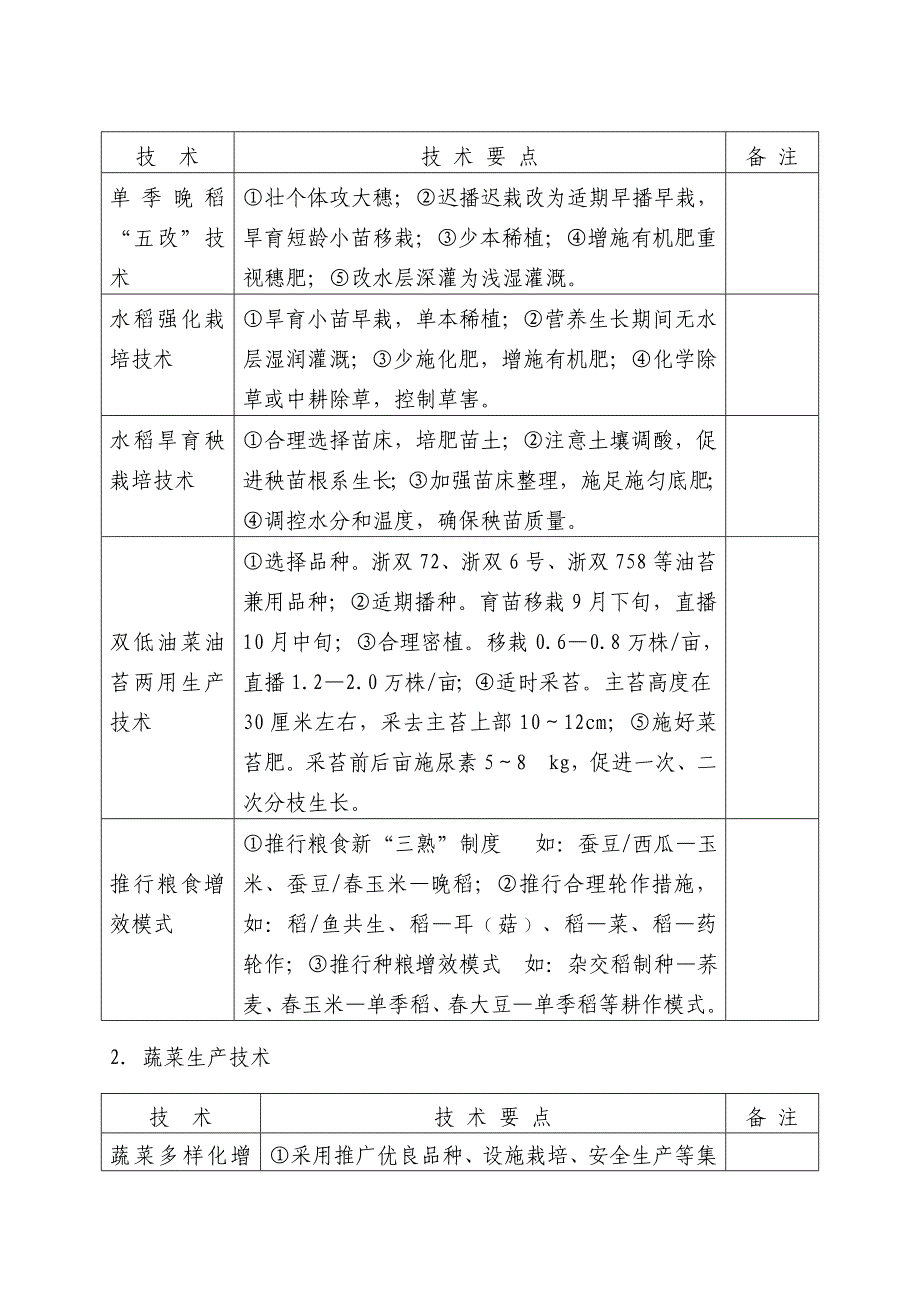 技 术 技 术 要 点 备 注
单季晚稻 ①壮个体攻大穗；②迟播迟栽改为适期早播早栽，
“五改”技 旱育短龄小苗移栽；③少本稀植；④增施有机肥重
术 视穗肥；⑤改水层深灌为浅湿灌溉。
水稻强化栽 ①旱育小苗早栽，单本稀植；②营养生长期间无水
培技术 层湿润灌溉；③少施化肥，增施有机肥；④化学除
草或中耕除草，控制草害。
水稻旱育秧 ①合理选择苗床，培肥苗土；②注意土壤调酸，促
栽培技术 进秧苗根系生长；③加强苗床整理，施足施匀底肥；
④调控水分和温度，确保秧苗质量。
①选择品种。浙双72、浙双6号、浙双758等油苔
兼用品种；②适期播种。育苗移栽9月下旬，直播
双低油菜油 10月中旬；③合理密植。移栽0.6—0.8万株/亩，
苔两用生产 直播1.2—2.0万株/亩；④适时采苔。主苔高度在
技术 30厘米左右，采去主苔上部10～12cm；⑤施好菜
苔肥。采苔前后亩施尿素5～8 kg，促进一次、二
次分枝生长。
①推行粮食新“三熟”制度 如：蚕豆/西瓜—玉
推行粮食增 米、蚕豆/春玉米—晚稻；②推行合理轮作措施，
效模式 如：稻/鱼共生、稻—耳（菇）、稻—菜、稻—药
轮作；③推行种粮增效模式 如：杂交稻制种—荞
麦、春玉米—单季稻、春大豆—单季稻等耕作模式。
2. 蔬菜生产技术
技 术 技 术 要 点 备 注
蔬菜多样化增 ①采用推广优良品种、设施栽培、安全生产等集